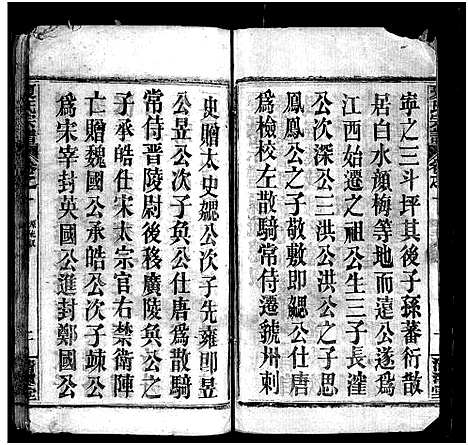 寧之三斗坪其後子孫蕃衍散
居白水顔梅等地而瀛公遂爲
江西始遷之祖公生三子長漌
公次深公三洪公洪公之子愍
鳳鳳公之子敬即勰公仕唐
爲檢校左散騎常侍遷虢州刺
史贈太史勰公次子先雍即昱
公昱公次子奐公仕唐爲散騎
常侍晋陵尉後移廣陵奐公之
子承皓仕宋太宗官右禁衛陣
亡贈魏國公承皓公次子竦公
爲宋宰封英國公進封鄭國公